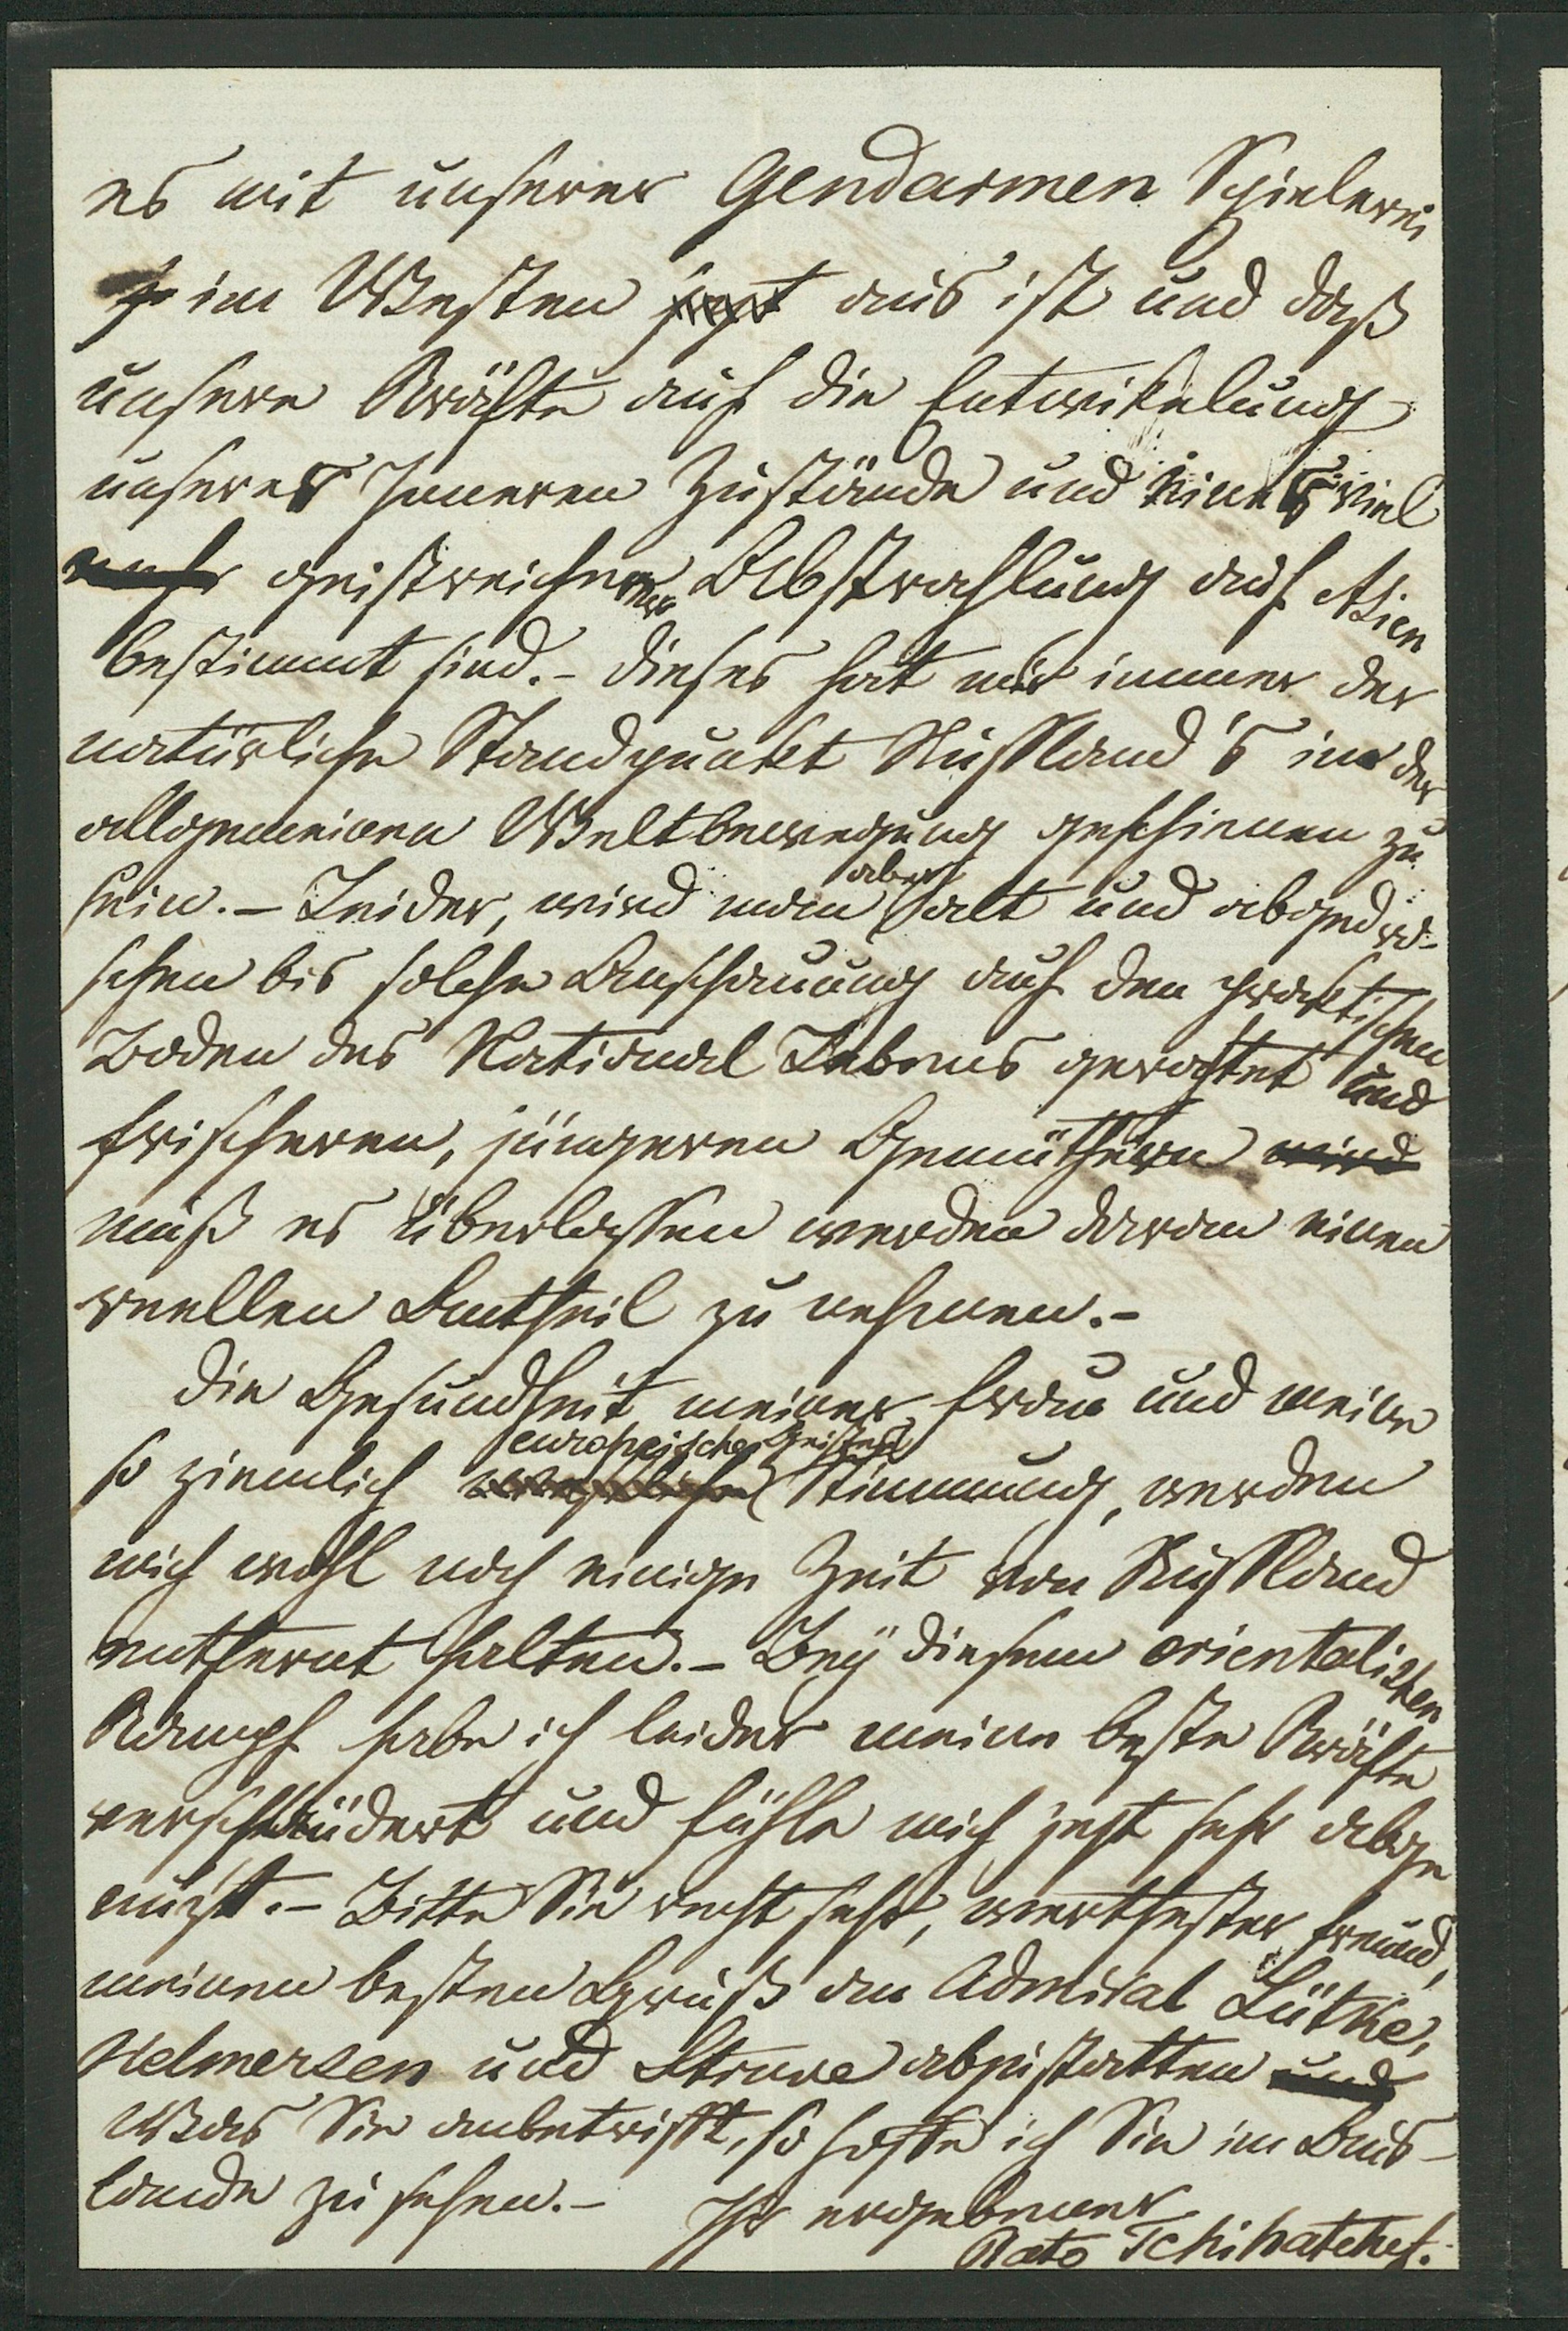 es mit unserer Gendarmen Spielerei
im Westen jezt aus ist und daß
unsere Kräfte auf die Entwikelung
unserer Inneren Zustände und einer viel
mehr geistreicheren Abstrahlung auf Asien
bestimmt sind. – Dieses hat mir immer der
natürliche Standpunkt Rußland's in der
allgemeinen Weltbewegung geschienen zu
sein. – Leider, wird man aber alt und abgedro-
schen bis solche Anschauung auf den praktischen
Boden des National Lebens gerathet und
frischeren, jüngeren Gemüthern wird
muß es überlassen werden daran einen
reellen Antheil zu nehmen. –
Die Gesundheit meiner Frau und meine
so ziemlich europeische Geistes Stimmung, werden
mich wohl noch einige Zeit von Rußland
entfernt halten. – Bey diesem orientalischen
Kampf habe ich leider meine beste Kräfte
verschleüdert und fühle mich jezt sehr abge
nüzt. – Bitte Sie recht sehr, werthester Freund,
meinen besten Gruß an Admiral Lütke,
Helmersen und Struve abzustatten und
Was Sie anbetrifft, so hoffe ich Sie im Aus-
lande zu sehen. – Ihr ergebener
Tchihatchef.